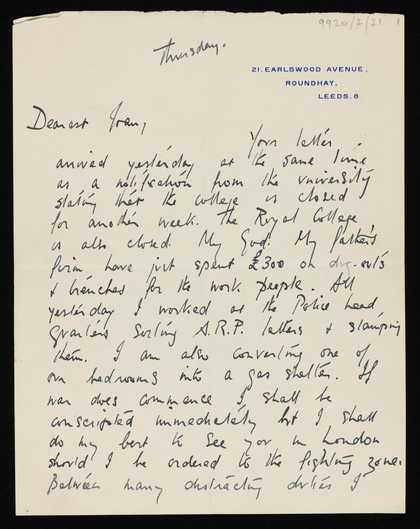 9920/2/21 1
Thursday.
21. EARLSWOOD AVENUE,
ROUNDHAY,
LEEDS. 8
Dearest Joan,
Your letter
arrived yesterday at the same time
as a notification from the university
stating that the college is closed
for another week. The Royal College
is also closed My God! My father's
firm have just spent £300 on dug-outs
& trenches for the work people. All
yesterday I worked at the Police head
quarters sorting A.R.P. letters & stamping
them. I am also converting one of
our bedrooms into a gas shelter. If
war does commence I shall be
conscripted immediately but I shall
do my best to see you in London
should I be ordered to the fighting zone.
Between many distracting duties I